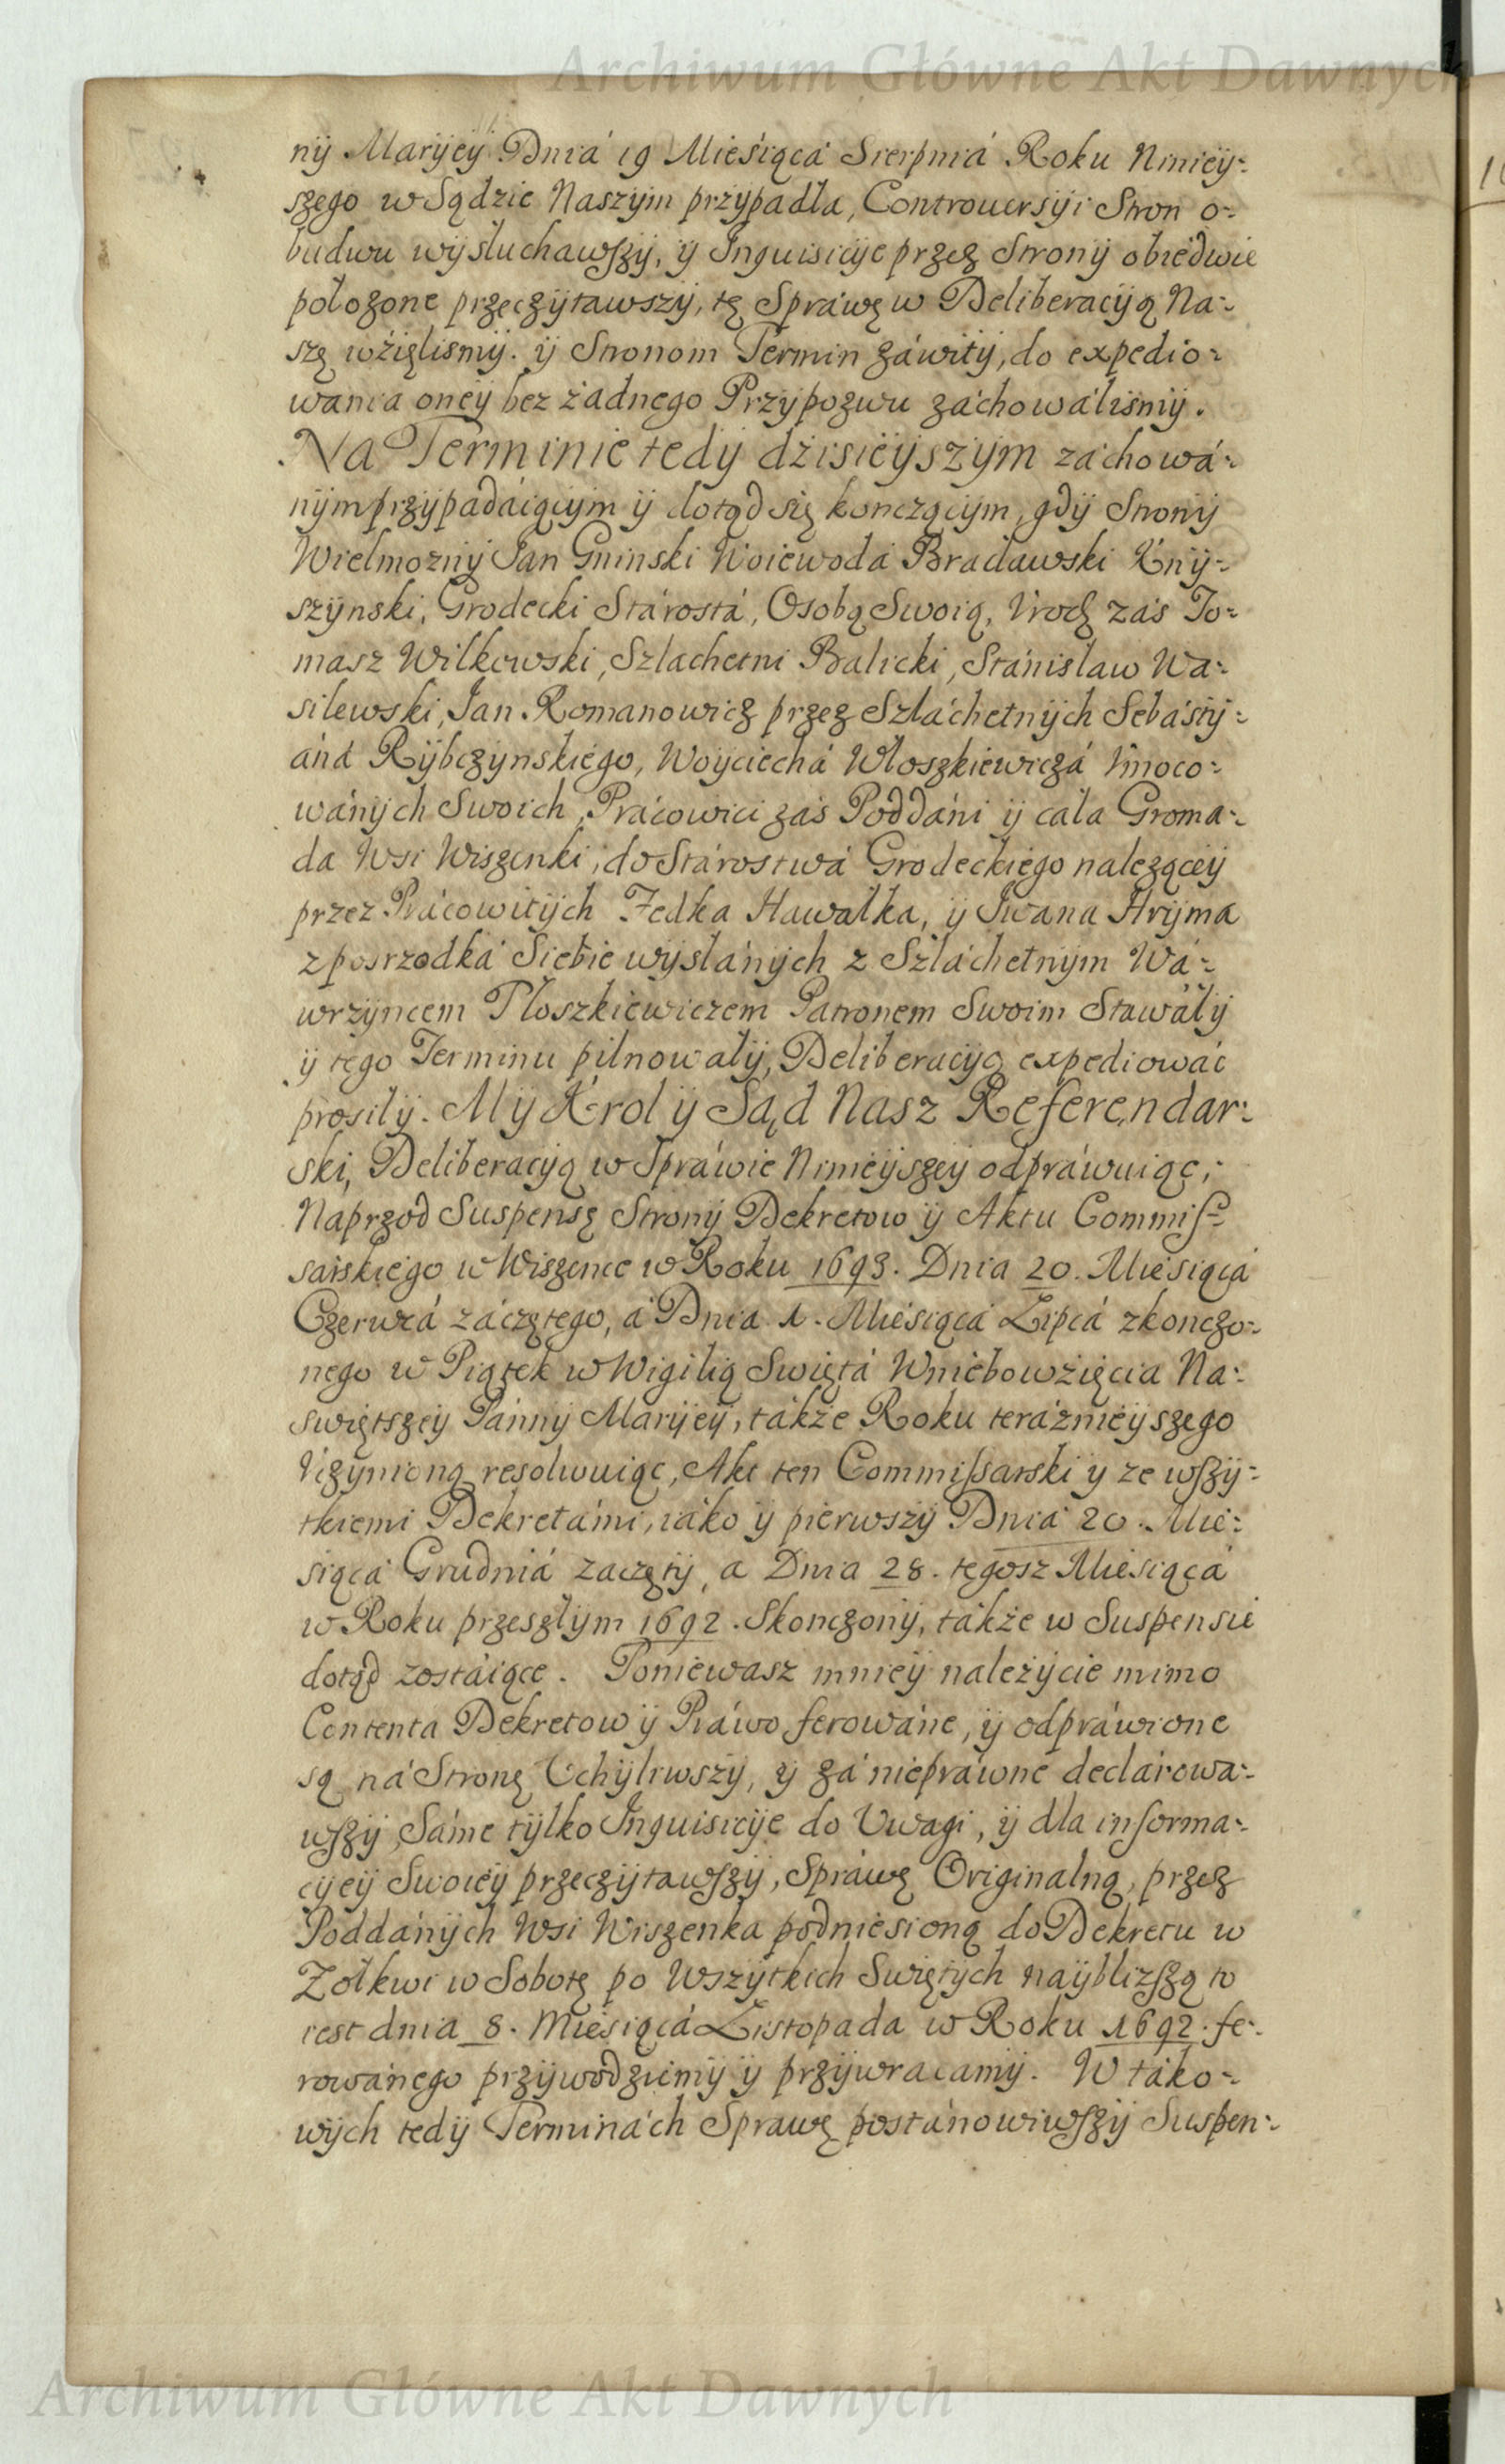 Archiwum Główne Akt Dawnych
ny Maryey Dniá 19 Mieśiącá Sierpniá Roku Ninieÿ-
szego w Sądzie Naszym przypadła, Controuersyi Stron o-
budwu wysłuchawszy, ÿ Inquisicÿe przez Strony obiedwie
położone przeczytawszy, tę Spráwę w Deliberacÿą Na-
szę wźięlismÿ. ÿ Stronom Termin záwitÿ, do expedio-
wania oneÿ bez żadnego Przypozwu záchowálismÿ.
Na Terminie tedÿ dźisieÿszÿm záchowá-
nÿm przÿpadáiącÿm ÿ dotąd się kończącÿm, gdÿ Stronÿ
Wielmoznÿ Jan Gninski Woiewodá Bracławski Knÿ-
szÿnski, Grodecki Stárostá, Osobą Swoią, Vrodz zaś To-
masz Wilkowski, Szlachetni Balicki, Stánisław Wa-
silewski, Jan Romanowicz przez Szláchetnÿch Sebástÿ-
áná Rÿbczÿnskiego, Woÿciechá Włoszkiewiczá Vmoco-
wánÿch Swoich, Prácowici zaś Poddáni ÿ cáła Groma-
da Wsi Wiszenki, do Stárostwá Grodeckiego naleząceÿ
przez Prácowitÿch Fedka Hawałka, ÿ Iwana Hrÿma
z posrzodká Siebie wÿsłánÿch z Szláchetnÿm Wá-
wrzÿncem Płoszkiewiczem Patronem Swoim Stawáłÿ
ÿ tego Terminu pilnowałÿ, Deliberacÿą expediowáć
prosiłÿ. Mÿ Krol ÿ Sąd Nasz Referendar-
ski, Deliberacÿą w Spráwie Ninieÿszeÿ odpráwuiąc,
Naprzod Suspensę Stronÿ Dekretow ÿ Aktu Commis-
sarskiego w Wiszence w Roku 1693. Dnia 20. Mieśiącá
Czerwcá záczętego, á Dnia 1. Mieśiącá Lipcá zkonczo-
nego w Piątek w Wigilią Swiętá Wniebowźięcia Na-
swiętszeÿ Pánnÿ Marÿeÿ, tákże Roku teráznieÿszego
Vczÿnioną resolwuiąc, Akt ten Commissarski ÿ ze wszÿ-
tkiemi Dekretámi, iáko ÿ pierwszÿ Dniá 20. Mie-
siącá Grudniá záczętÿ, a Dnia 28. tegosz Mieśiącá
w Roku przeszłÿm 1692. Skonczonÿ, tákże w Suspensie
dotąd zostáiące. Poniewasz mnieÿ należÿcie mimo
Contenta Dekretow ÿ Práwo ferowáne, ÿ odpráwione
są ná Stronę Vchÿliwszÿ, ÿ zá niepráwne declárowa-
wszÿ, Sáme tÿlko Inquisicÿe do Vwagi, ÿ dla informa-
cÿeÿ Swoieÿ przeczÿtawszÿ, Spráwę Originalną, przez
Poddánÿch Wsi Wiszenka podniesioną do Dekretu w
Zołkwi w Sobotę po Wszÿtkich Swiętÿch naÿblizszą to
iest dnia 8. Mieśiącá Listopada w Roku 1692. fe-
rowánego przÿwodziemÿ ÿ przÿwracamÿ. W táko-
wÿch tedÿ Termináchs Sprawę postánowiwszÿ Suspen-
Archiwum Główne Akt Dawnych